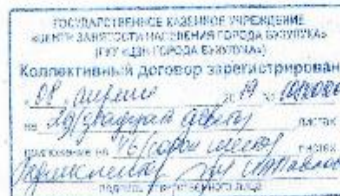 ГОСУДАРСТВЕННОЕ КАЗЕННОЕ УЧРЕЖДЕНИЕ
«ЦЕНТР ЗАНЯТОСТИ НАСЕЛЕНИЯ ГОРОДА БУЗУЛУКА»
(ГКУ «ЦЗН ГОРОДА БУЗУЛУКА»)
Коллективный договор зарегистрирован
"08" апреля 2019
на 29 (двадцати девяти) листах
приложение на 46 (сорок шести) листах
подпись ответственного лица